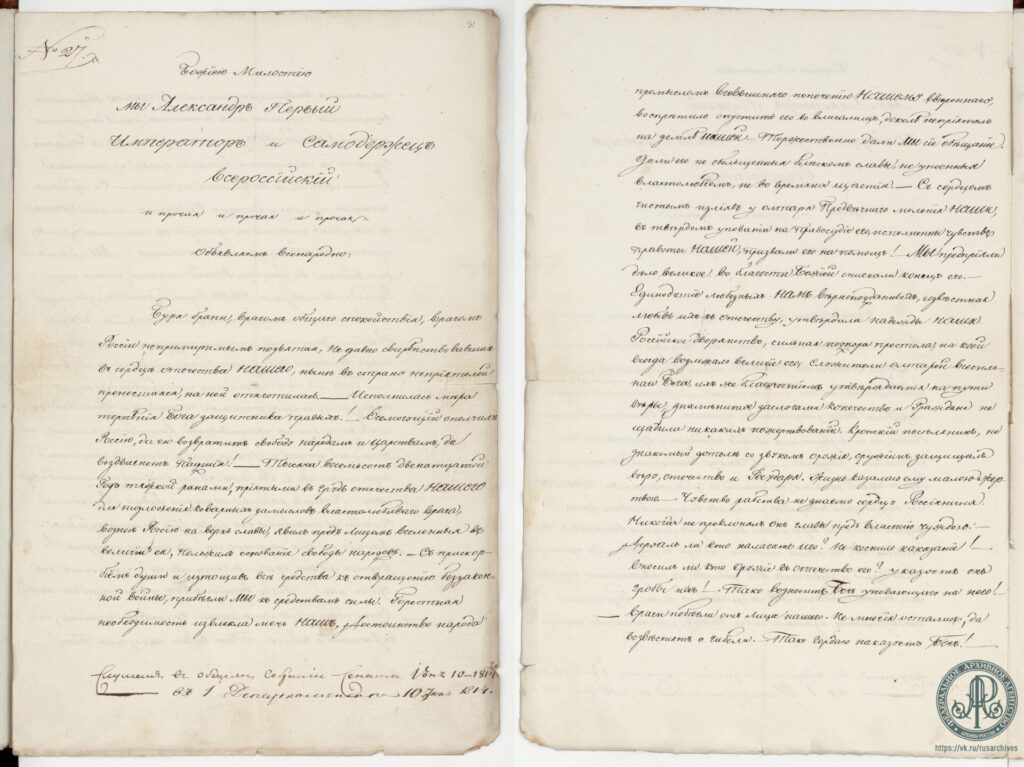 № 27.
31
Божіею Милостію
мы Александръ Первый
Императоръ и Самодержецъ
Всероссійскій
и прочая и прочая и прочая.
Объявляемъ всенародно:
Буря брани, врагомъ общаго спокойствія, врагомъ
Россіи непримиримымъ подъятая, не давно свирѣпствовавшая
въ сердцѣ отечества НАШЕГО, нынѣ въ страну непріятелей
пренесшаяся, на ней отяготилась.— Исполнилась мѣра
терпѣнія Бога защитника правыхъ! Всемогущій ополчилъ
Россію, да ею возвратитъ свободу народамъ и царствамъ, да
воздвигнетъ падшія!— Тысяча восемьсотъ двенатцатой
годъ тяжкой ранами, пріятыми въ грудь отечества НАШЕГО
для низложенія коварныхъ замысловъ властолюбиваго врага,
вознесъ Россію на верхъ славы, явилъ предъ лицемъ вселенныя въ
величіи ея, положилъ основаніе свободы народовъ.— Съ прискор-
біемъ души и изтощивъ всѣ средства къ отвращенію беззакон-
ной войны, прибѣгли МЫ къ средствамъ силы. Горестная
необходимость извлекла мечь НАШЪ, Достоинство народа
Слушали въ общемъ Собраніи Сената 10 1814
въ 1 Департаментѣ 10 1814.
промысломъ Всевышняго попеченію НАШЕМУ ввѣреннаго,
воспретило опустить его во влагалище, доколѣ непріятель
на землѣ НАШЕЙ.— Торжественно дали МЫ сіе обѣщаніе.
Дали его не обольщенныя блескомъ славы, не упоенныя
властолюбіемъ, не во времяна щастія.— Съ сердцемъ
чистымъ изліявъ у олтаря Предвѣчнаго моленія НАШИ,
въ твердомъ упованіи на правосудіе его, исполненны чувствъ
правоты НАШЕЙ, призвали его на помощь! МЫ предпріяли
дѣло великое! во благости Божіей снискали конецъ его.—
Единодшіе любезныхъ НАМЪ вѣрноподданныхъ, извѣстная
любовь ихъ къ отечеству, утвердила надежды НАШИ.
Россійское дворянство, сильная подпора престола, на коей
всегда возлежало величіе его; служители олтарей Всесиль-
наго Бога, ихъ же благочестіемъ утверждаемся на пути
вѣры; знаменитое заслугами купечество и Граждане не
щадили никакихъ пожертвованій. Кроткій поселянинъ, не
знакомый дотолѣ со звукомъ оружія, оружіемъ защищалъ
вѣру, отечество и Государя. Жизнь казалась ему малою жер-
твою.— Чувство рабства не знаемо сердцу Россіянина.
Никогда не преклонялъ онъ главы предъ властію чуждою.—
Дерзалъ ли кто налагать его? Не коснило наказаніе!
Вносилъ ли кто оружіе въ отечество его? указуетъ онъ
гробы ихъ! Тако возноситъ Богъ уповающихъ на него!
— Враги побѣгли отъ лица нашего. Не многіе остались, да
возвѣстятъ о гибели.— Тако гордаго наказуетъ Богъ!
ФЕДЕРАЛЬНОЕ АРХИВНОЕ АГЕНТСТВО
АРХИВЫ РОССИИ
https://vk.ru/rusarchives